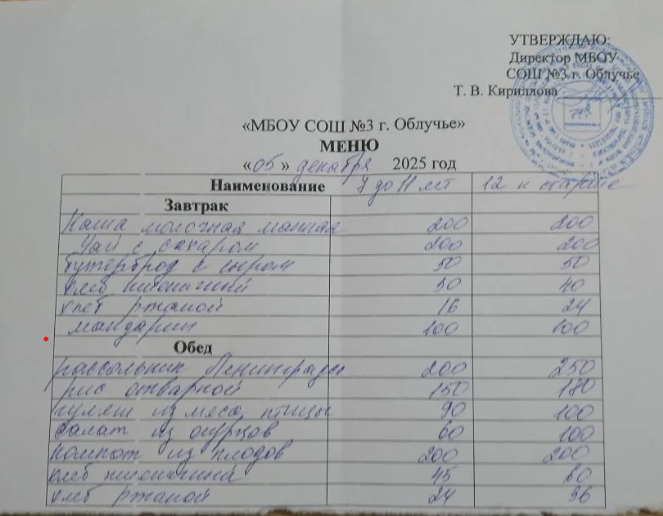 УТВЕРЖДАЮ:
Директор МБОУ
СОШ №3 г. Облучье
Т. В. Кириллова
«МБОУ СОШ №3 г. Облучье»
МЕНЮ
«05» декабря 2025 год
Наименование 7 до 11 лет 12 и старше
Завтрак
Каша молочная манная 200 200
Чай с сахаром 200 200
бутерброд с сыром 50 50
хлеб пшеничный 30 40
хлеб ржаной 16 24
мандарин 100 100
Обед
рассольник Ленинградск 200 250
рис отварной 150 180
гуляш из мяса птицы 90 100
салат из огурцов 60 100
компот из плодов 200 200
хлеб пшеничный 45 60
хлеб ржаной 24 36